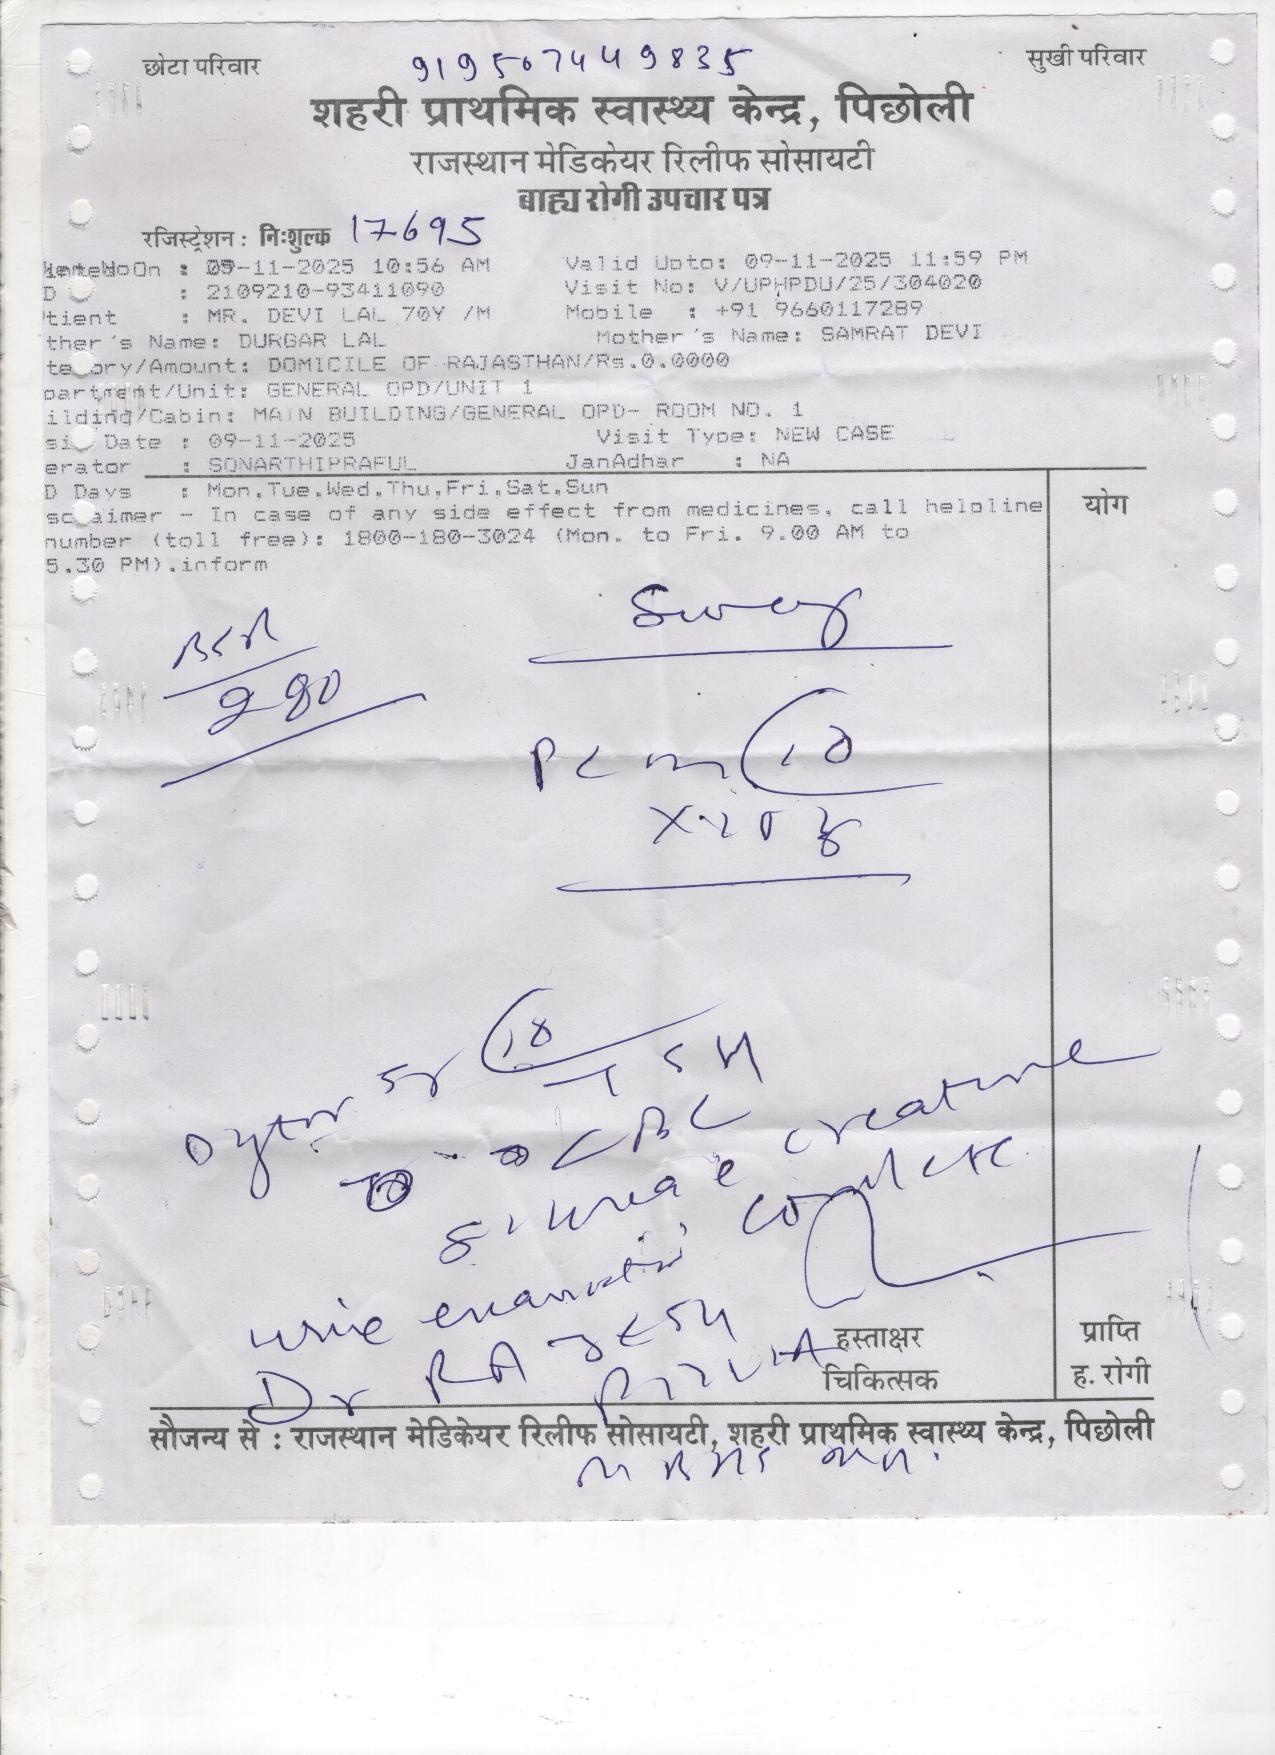 छोटा परिवार
919507449835
सुखी परिवार
शहरी प्राथमिक स्वास्थ्य केन्द्र, पिछोली
राजस्थान मेडिकेयर रिलीफ सोसायटी
बाह्य रोगी उपचार पत्र
रजिस्ट्रेशन : निःशुल्क 17695
On : 09-11-2025 10:56 AM Valid Upto: 09-11-2025 11:59 PM
D : 2109210-93411090 Visit No: V/UPHPDU/25/304020
tient : MR. DEVI LAL 70Y /M Mobile : +91 9660117289
ther's Name: DURGAR LAL Mother's Name: SAMRAT DEVI
te ory/Amount: DOMICILE OF RAJASTHAN/Rs.0.0000
partment/Unit: GENERAL OPD/UNIT 1
ilding/Cabin: MAIN BUILDING/GENERAL OPD- ROOM NO. 1
si Date : 09-11-2025 Visit Type: NEW CASE
erator : SONARTHIPRAFUL JanAdhar : NA
D Days : Mon,Tue,Wed,Thu,Fri,Sat,Sun
sclaimer - In case of any side effect from medicines, call helpline
number (toll free): 1800-180-3024 (Mon. to Fri. 9.00 AM to
5.30 PM).inform
योग
280
PCM 10
Dytor 5 10
TSH
CBC
S. urea e creatine
urine examination complete
Dr RAJESH
हस्ताक्षर
चिकित्सक
प्राप्ति
ह. रोगी
सौजन्य से : राजस्थान मेडिकेयर रिलीफ सोसायटी, शहरी प्राथमिक स्वास्थ्य केन्द्र, पिछोली
MBBS